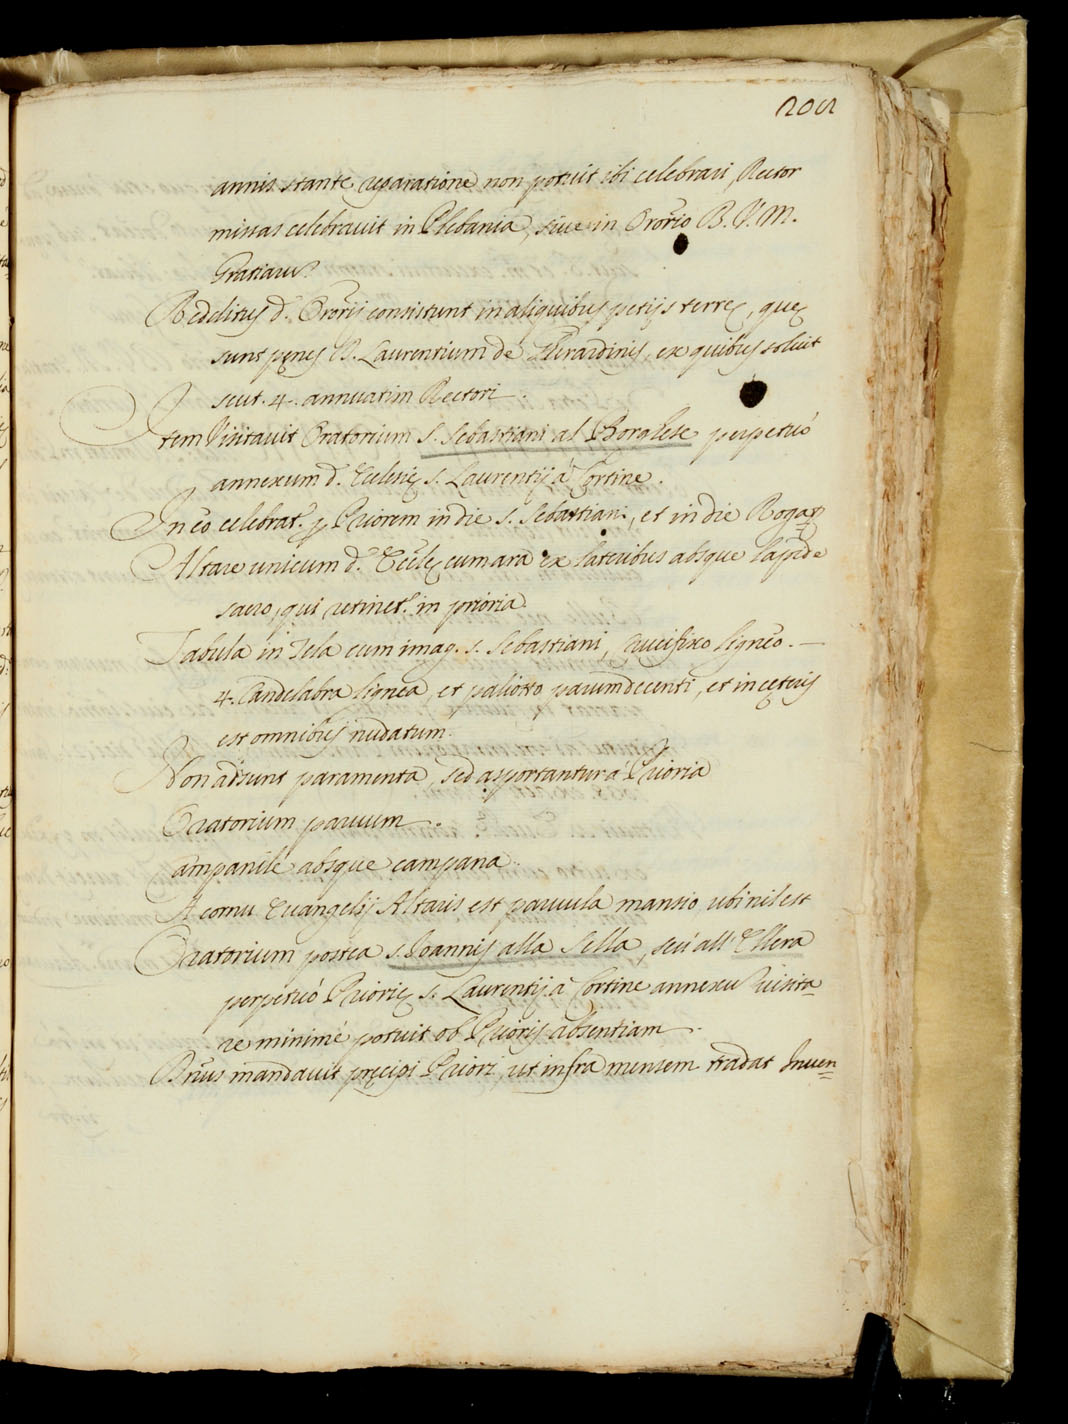 202
annis stante reparatione non potuit ibi celebrari, Rector
missas celebravit in Plebania, sive in Oro͂rio B. V. M.
Gratiaru͂
Redditus d. Oro͂rij consistunt in aliquibus petijs terrę, quę
sunt penes B. Laurentium de Gherardinis, ex quibus solvit
scut. 4. annuatim Rectori.
Item Visitavit Oratorium S. Sebastiani al Borghese perpetuò
annexum d. Ecclesię S. Laurentij à Cortine.
In eo celebrat. p Priorem in die S. Sebastiani, et in die Rogat.
Altare unicum d. Eccl͂ę cum ara ex lateribus absque lapide
sacro, qui retinet. in prioria.
Tabula in Tela cum imag. S. Sebastiani, Crucifixo ligneo.
4. Candelabra lignea, et paliotto parum decenti, et in cęteris
est omnibus nudatum.
Non adsunt paramenta, sed asportantur à Prioria
Oratorium parvum.
Campanile absque campana.
A cornu Evangelij Altaris est parvula mansio ubi nil est
Oratorium postea S. Joannis alla Sella, seù all'Ellera
perpetuò Priorię S. Laurentij à Cortine annexu͂ visita=
re minimè potuit ob Prioris absentiam.
Prius mandavit pręcipi Priori, ut infra mensem tradat Inven=